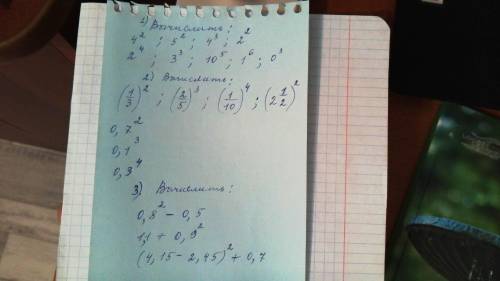 1) Вычислить:
4² ; 5² ; 4³ ; 2²
2⁴ ; 3³ ; 10⁵ ; 1⁶ ; 0³
2) Вычислить:
(1/3)² ; (2/5)³ ; (1/10)⁴ ; (2 1/2)²
0,7²
0,1³
0,3⁴
3) Вычислить:
0,8² - 0,5
1,1 + 0,9²
(4,15 - 2,45)² + 0,7